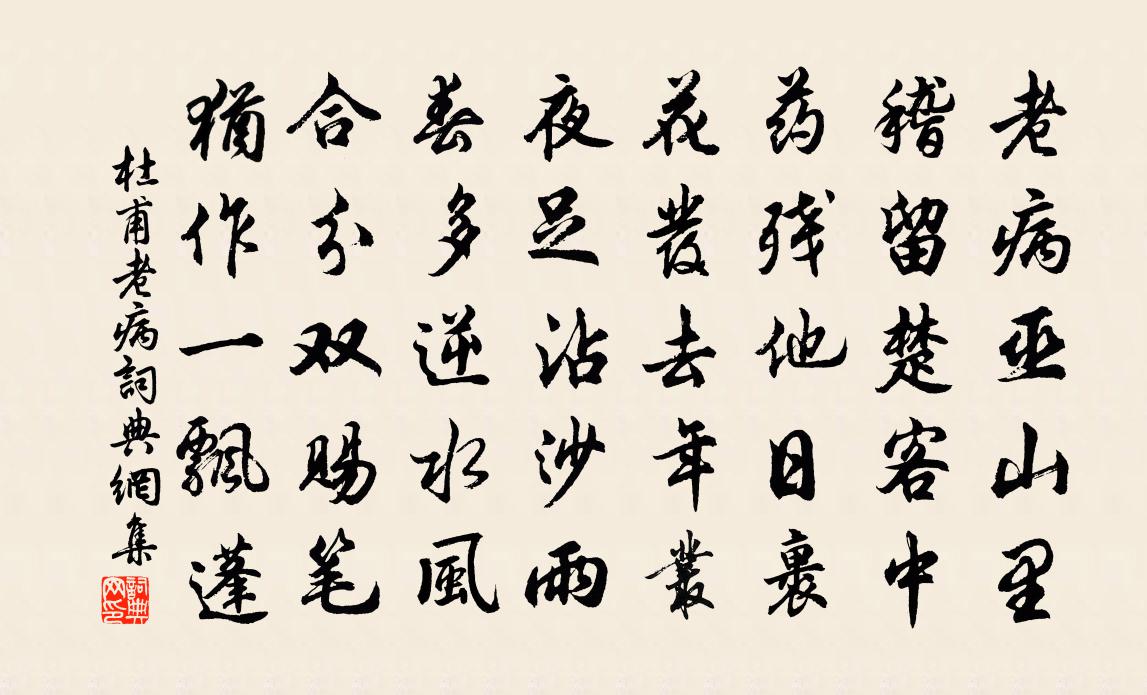 老病巫山里
稽留楚客中
药残他日裹
花發去年叢
夜足沾沙雨
春多逆水風
合分双賜笔
猶作一飄蓬
杜甫老病詞典網集
詞典網印